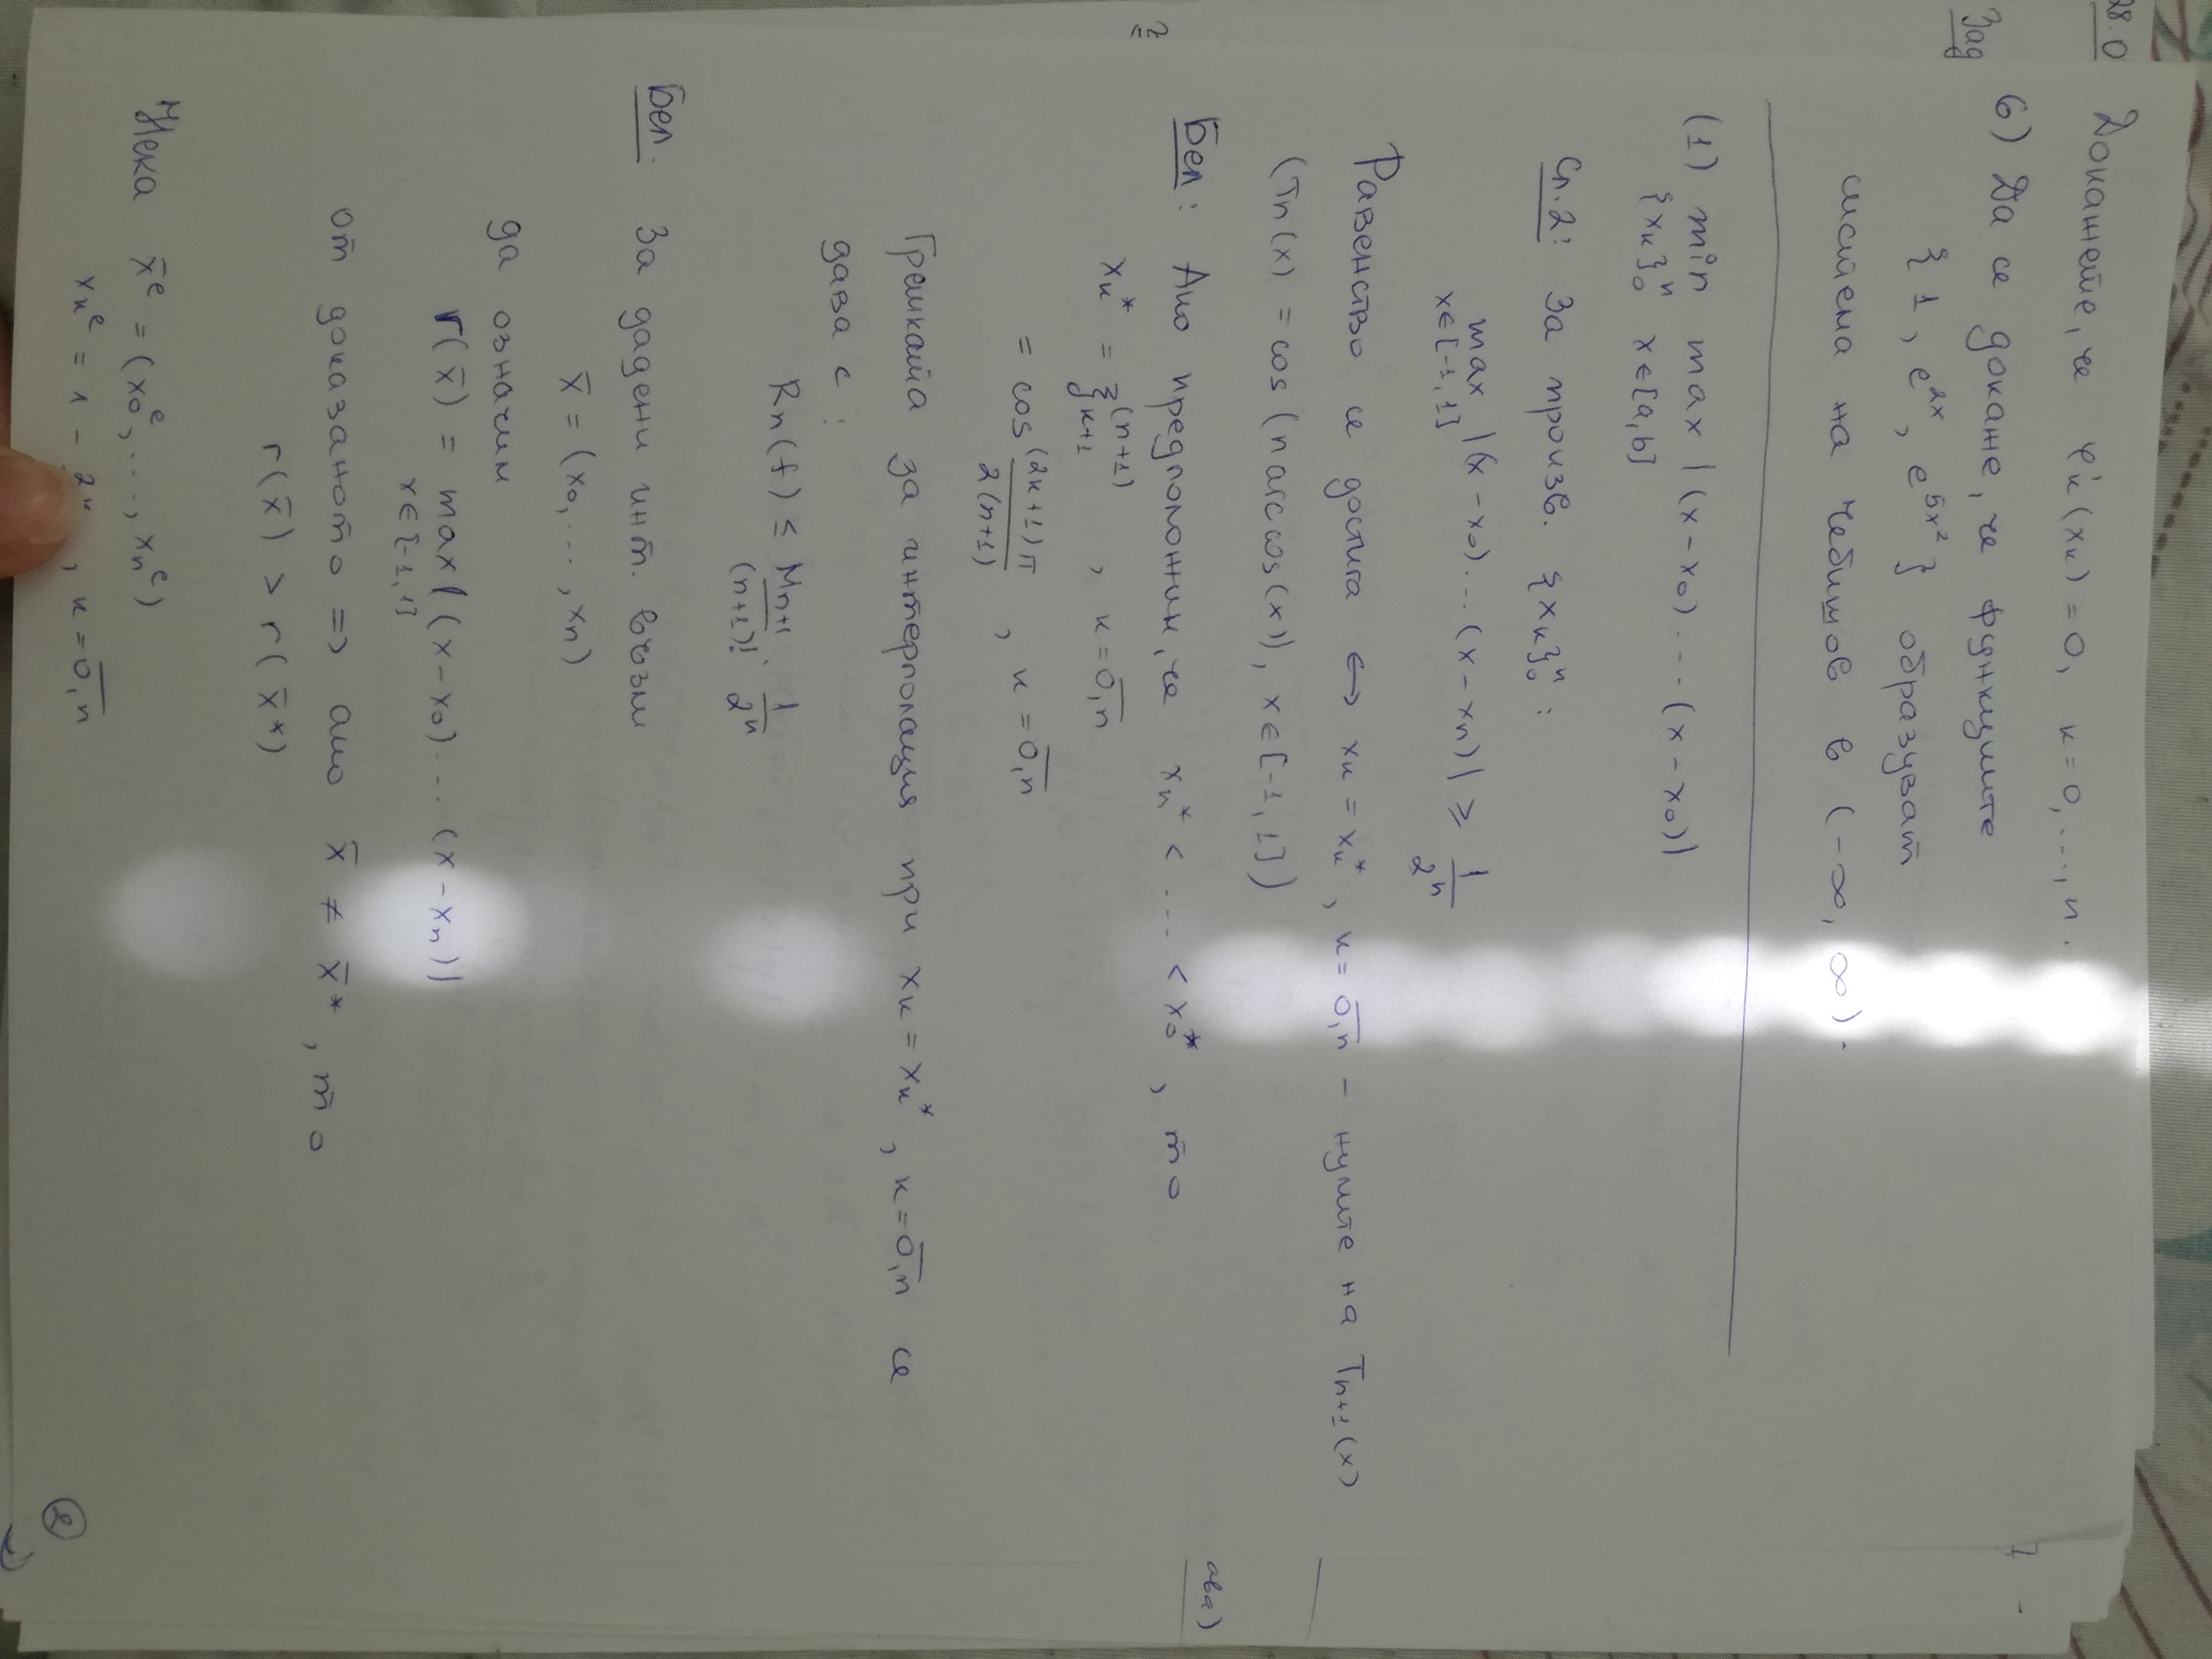 28.0
Докажете, че φ'ₖ(xₖ) = 0, к = 0, ..., n.
Зад
6) Да се докаже, че функциите
{ 1, e^{2x}, e^{5x²} } образуват
система на Чебишов в (-∞, ∞).
(1) min max |(x-x₀)...(x-x₀)|
{xₖ}₀ⁿ x∈[a,b]
Сл.2: За произв. {xₖ}₀ⁿ :
max |(x-x₀)...(x-xₙ)| ≥ 1/2ⁿ
x∈[-1,1]
Равенство се достига ⟷ xₖ = xₖ*, к = 0,n - нулите на Tₙ₊₁(x)
(Tₙ(x) = cos(n arccos(x)), x∈[-1,1])
ова)
Бел: Ако предположим, че xₙ* < ... < x₀*, то
xₖ* = ξₖ₊₁^{(n+1)}, к = 0,n
= cos (2к+1)π / 2(n+1), к = 0,n
Грешката за интерполация при xₖ = xₖ*, к = 0,n се
дава с :
Rₙ(f) ≤ Mₙ₊₁/(n+1)! . 1/2ⁿ
Бел. За дадени инт. възли
x̄ = (x₀, ..., xₙ)
да означим
r(x̄) = max|(x-x₀)...(x-xₙ)|
x∈[-1,1]
от доказаното => ако x̄ ≠ x̄*, то
r(x̄) > r(x̄*)
Нека x̄ᵉ = (x₀ᵉ, ..., xₙᵉ)
xₖᵉ = 1 - 2к , к = 0,n
2